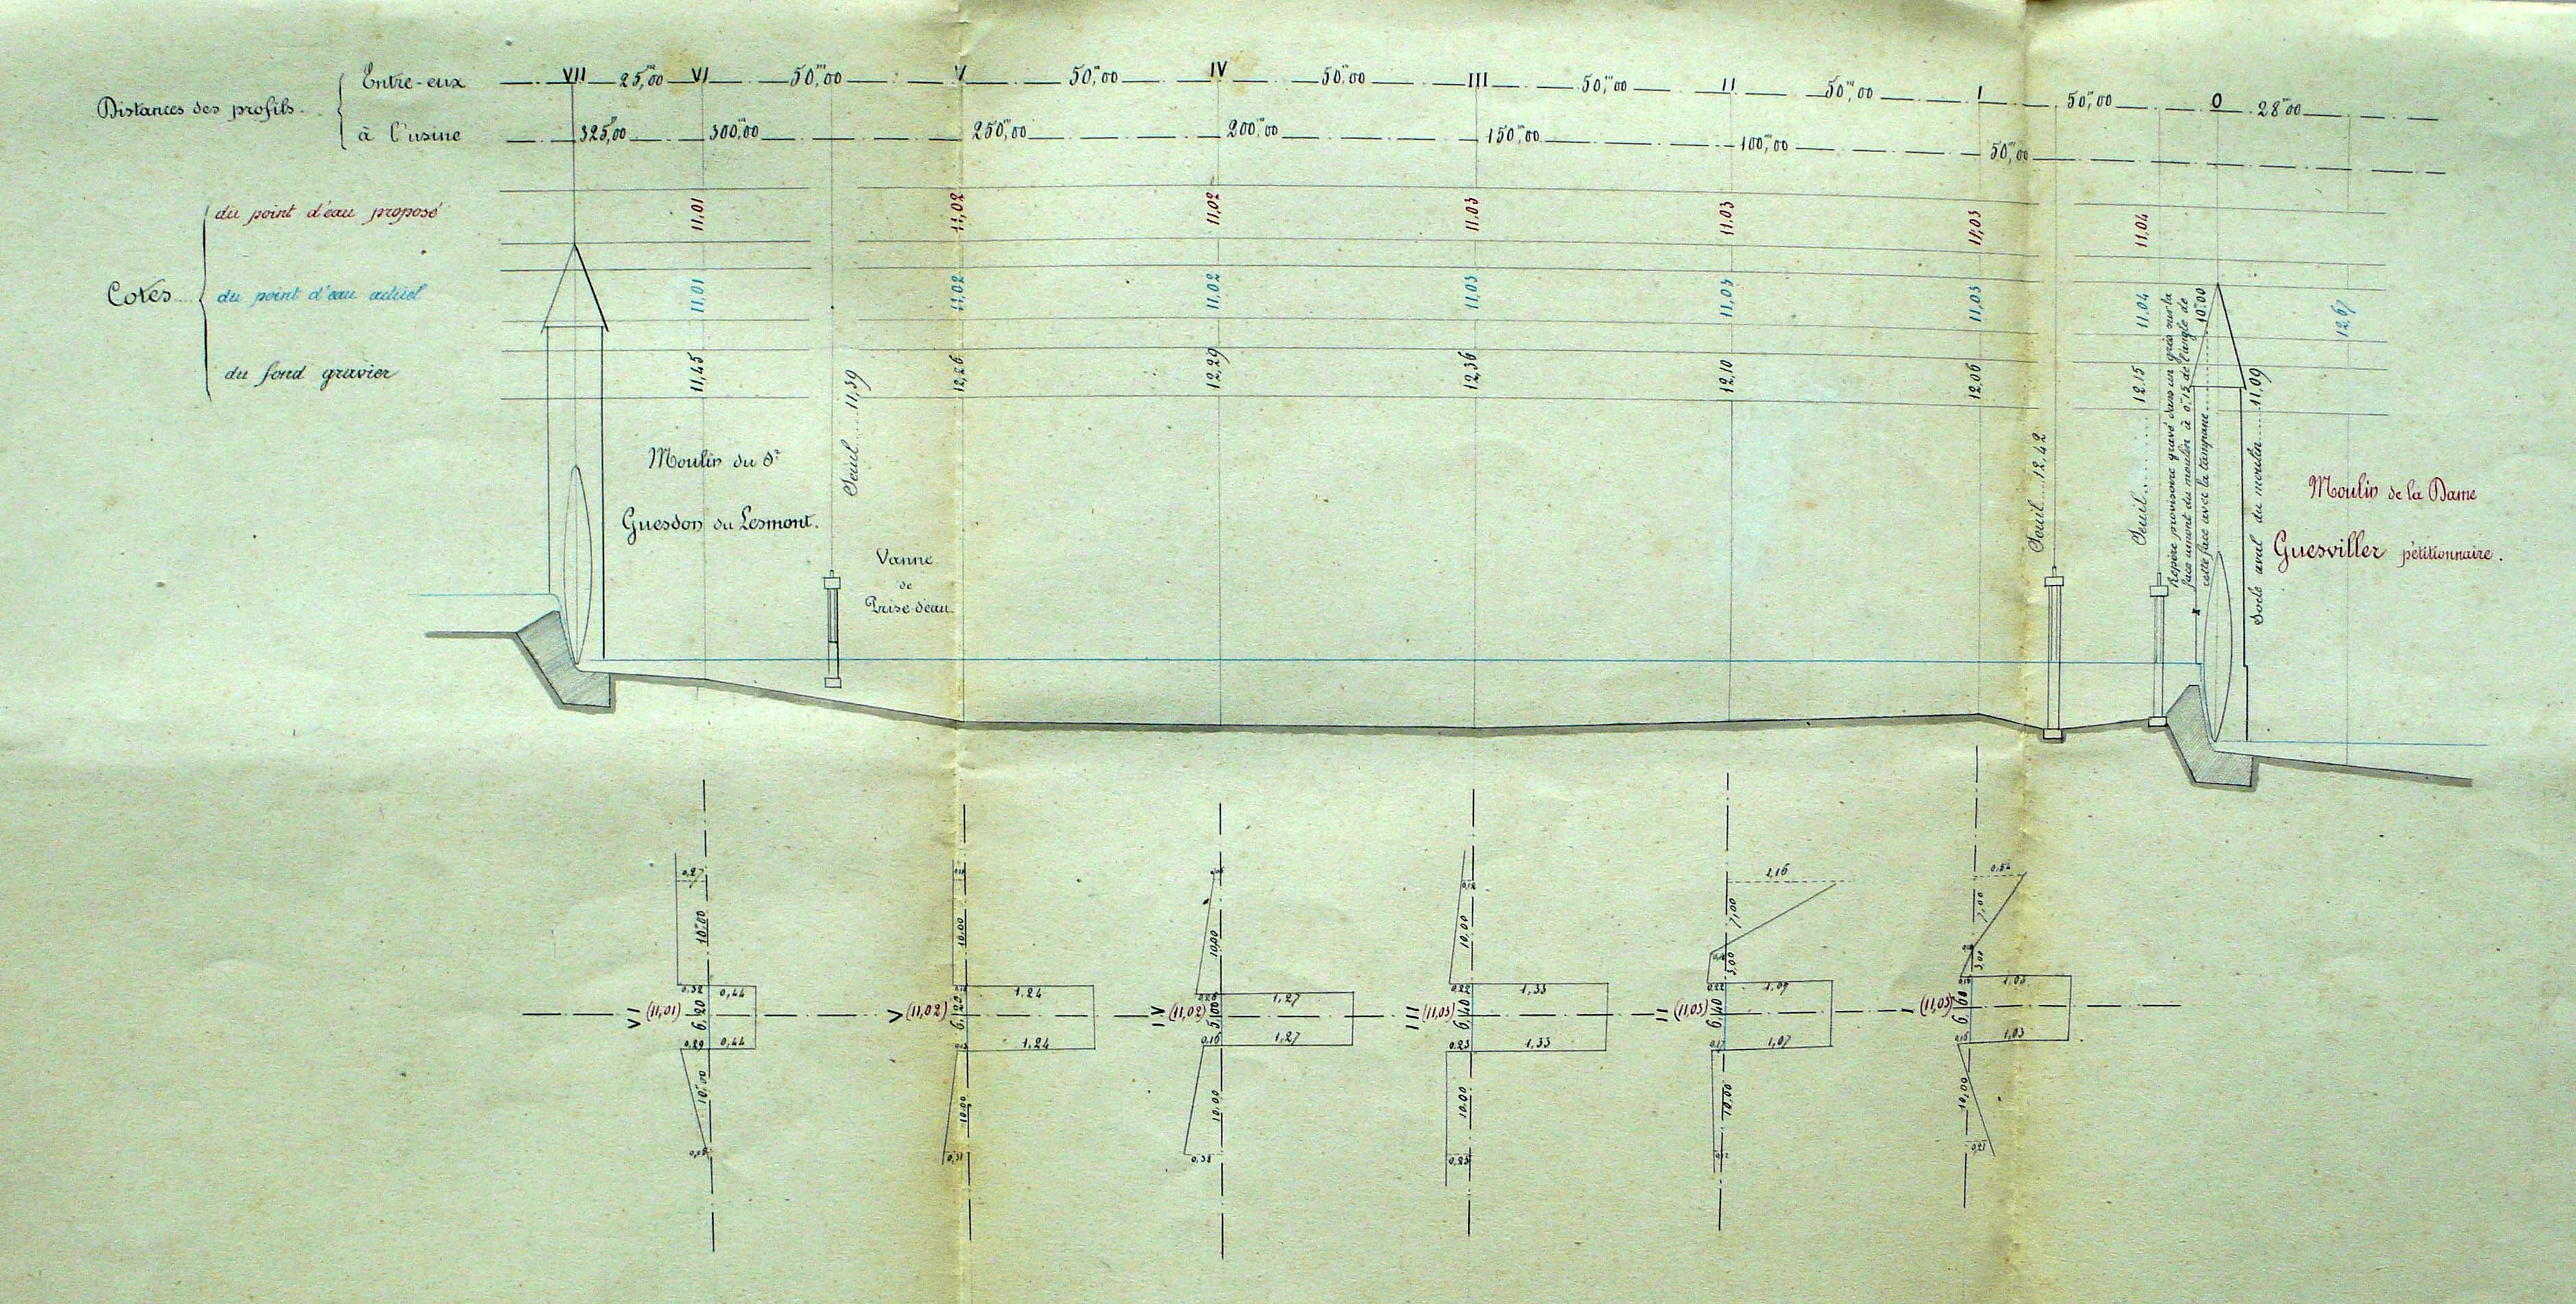 Distances des profils.
Entre-eux VII 25,m00 VI 50,m00 V 50,m00 IV 50,m00 III 50,m00 II 50,m00 I 50,m00 0 28m00
à l'usine 325,00 300,m00 250,m00 200,m00 150,m00 100,m00 50,m00
Cotés
du point d'eau proposé 11,01 11,02 11,02 11,03 11,03 11,03 11,04
du point d'eau actuel 11,01 11,02 11,02 11,03 11,03 11,03 11,04 12,67
du fond gravier 11,45 12,26 12,29 12,36 12,10 12,06 12,15
Moulin du Sr
Guesdon du Lesmont.
Seuil....11,39
Vanne
de
Prise d'eau
Seuil....12,42
Seuil
Repère provisoire gravé dans un grés sur la
face amont du moulin à 0m,15 de l'angle de
cette face avec la tampane 10m00
Socle aval du moulin 11,09
Moulin de la Dame
Guesviller pétitionnaire.
0,27
10,00
0,32 0,44
VI (11,01) 6,20
0,29 0,44
10,00
10,00
1,24
V (11,02) 6,20
1,24
10,00
0,31
10,00
1,27
IV (11,02) 5,00
0,16 1,27
10,00
0,38
10,00
0,22 1,33
III (11,03) 6,40
0,25 1,33
10,00
0,25
2,16
7,00
3,00
1,07
II (11,03) 6,40
1,07
10,00
7,00
3,00
1,03
I (11,03) 6,60
1,03
10,00
0,21